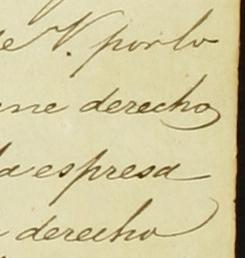 de N. por lo
ene derecho
da espresa
derecho